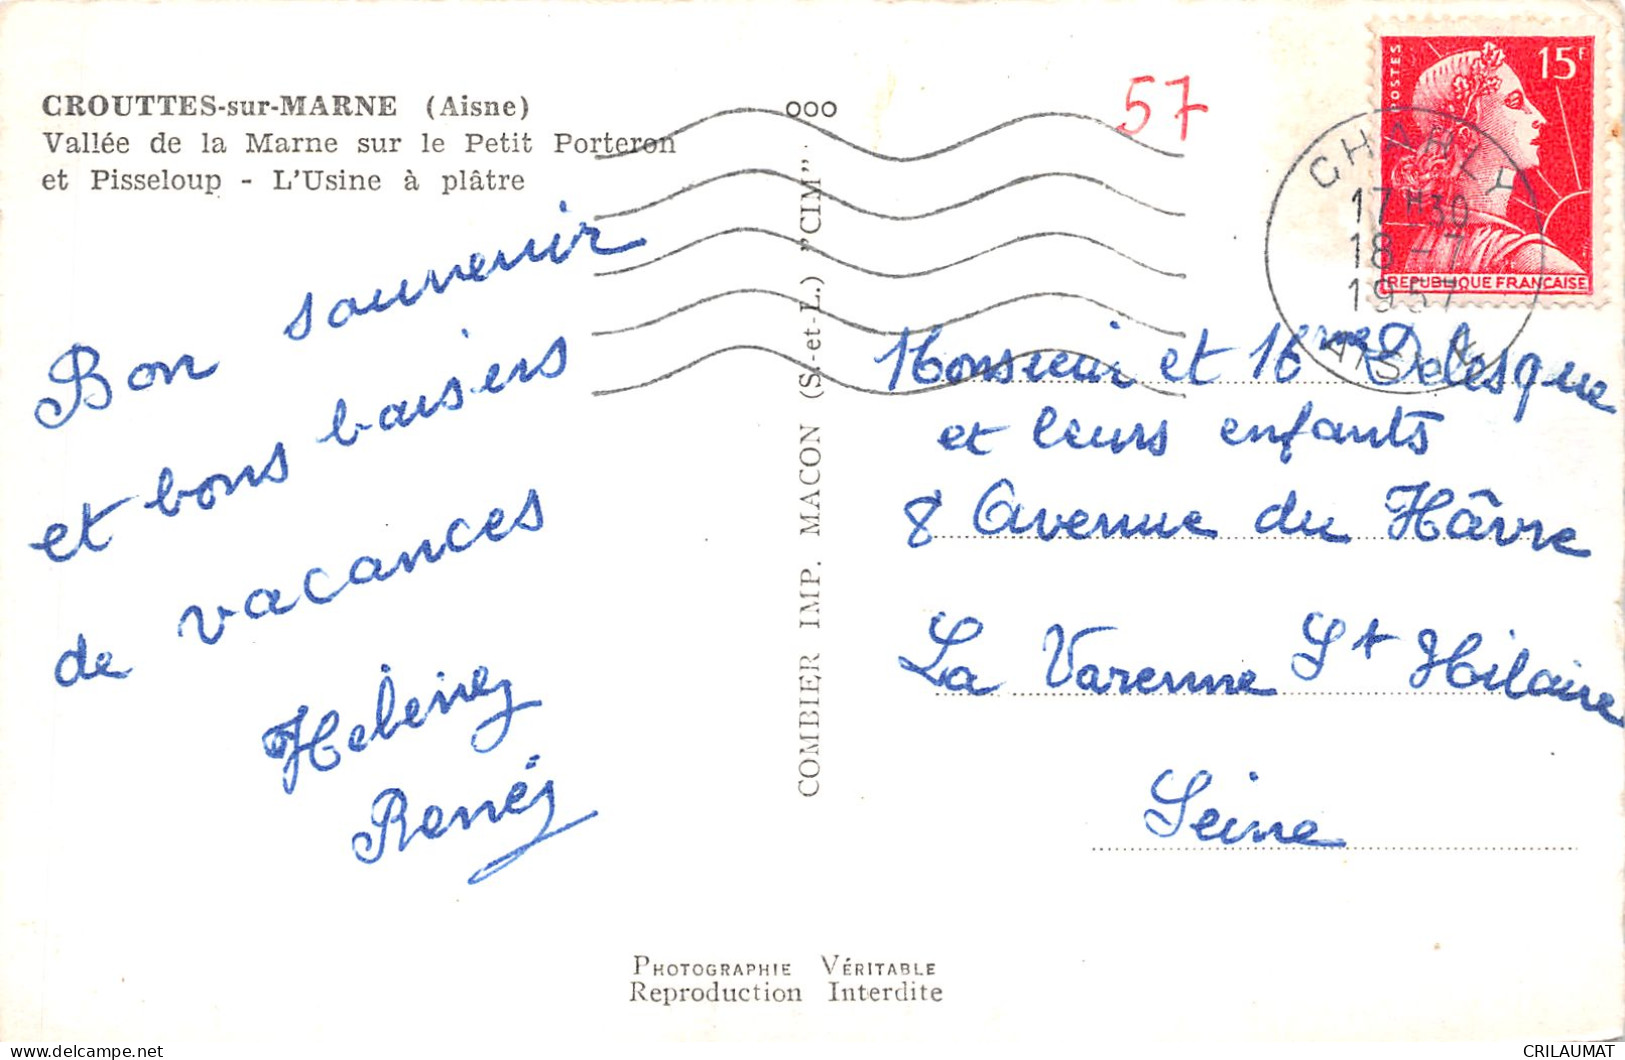 CROUTTES-sur-MARNE (Aisne)
Vallée de la Marne sur le Petit Porteron
et Pisseloup - L'Usine à plâtre
Bon souvenir
et bons baisers
de vacances
René
COMBIER IMP. MACON (S.-et-L.) "CIM"
ooo
57
POSTES
15F
REPUBLIQUE FRANÇAISE
CHARLY
17H30
18-7
1957
AISNE
Monsieur et Mme Delesque
et leurs enfants
8 Avenue du Hâvre
La Varenne St Hilaire
Seine
PHOTOGRAPHIE VÉRITABLE
Reproduction Interdite
CRILAUMAT